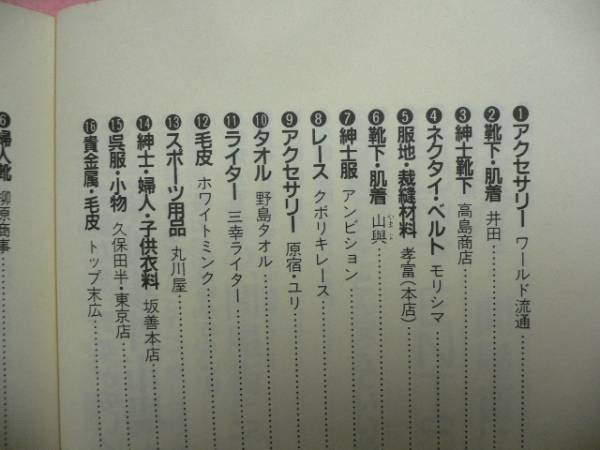 ❶アクセサリー ワールド流通
❷靴下・肌着 井田
❸紳士靴下 高島商店
❹ネクタイ・ベルト モリシマ
❺服地・裁縫材料 孝富(本店)
❻靴下・肌着 山與
❼紳士服 アンビション
❽レース クボリキレース
❾アクセサリー 原宿・ユリ
❿タオル 野島タオル
⓫ライター 三幸ライター
⓬毛皮 ホワイトミンク
⓭スポーツ用品 丸川屋
⓮紳士・婦人・子供衣料 坂善本店
⓯呉服・小物 久保田半・東京店
⓰貴金属・毛皮 トップ末広
婦人靴 柳原商事